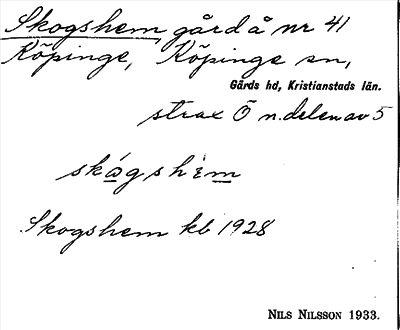 Skogshem, gård å nr 41
Köpinge, Köpinge sn,
Gärds hd, Kristianstads län.
strax Ö n. delen av 5
skógshèm
Skogshem kb 1928
NILS NILSSON 1933.